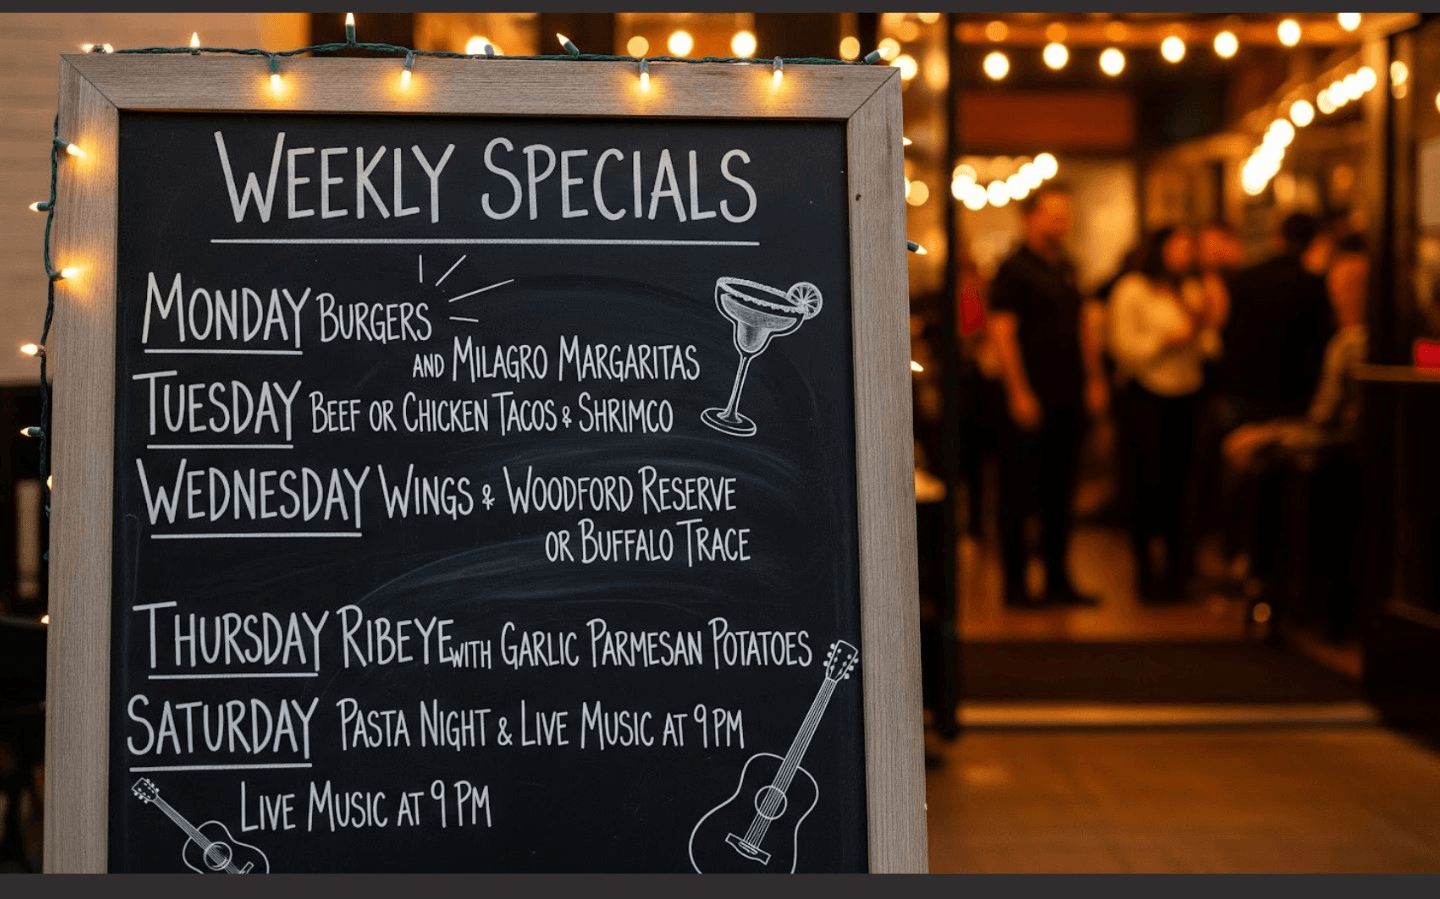 WEEKLY SPECIALS
MONDAY BURGERS
AND MILAGRO MARGARITAS
TUESDAY BEEF OR CHICKEN TACOS & SHRIMCO
WEDNESDAY WINGS & WOODFORD RESERVE
OR BUFFALO TRACE
THURSDAY RIBEYE WITH GARLIC PARMESAN POTATOES
SATURDAY PASTA NIGHT & LIVE MUSIC AT 9 PM
LIVE MUSIC AT 9 PM